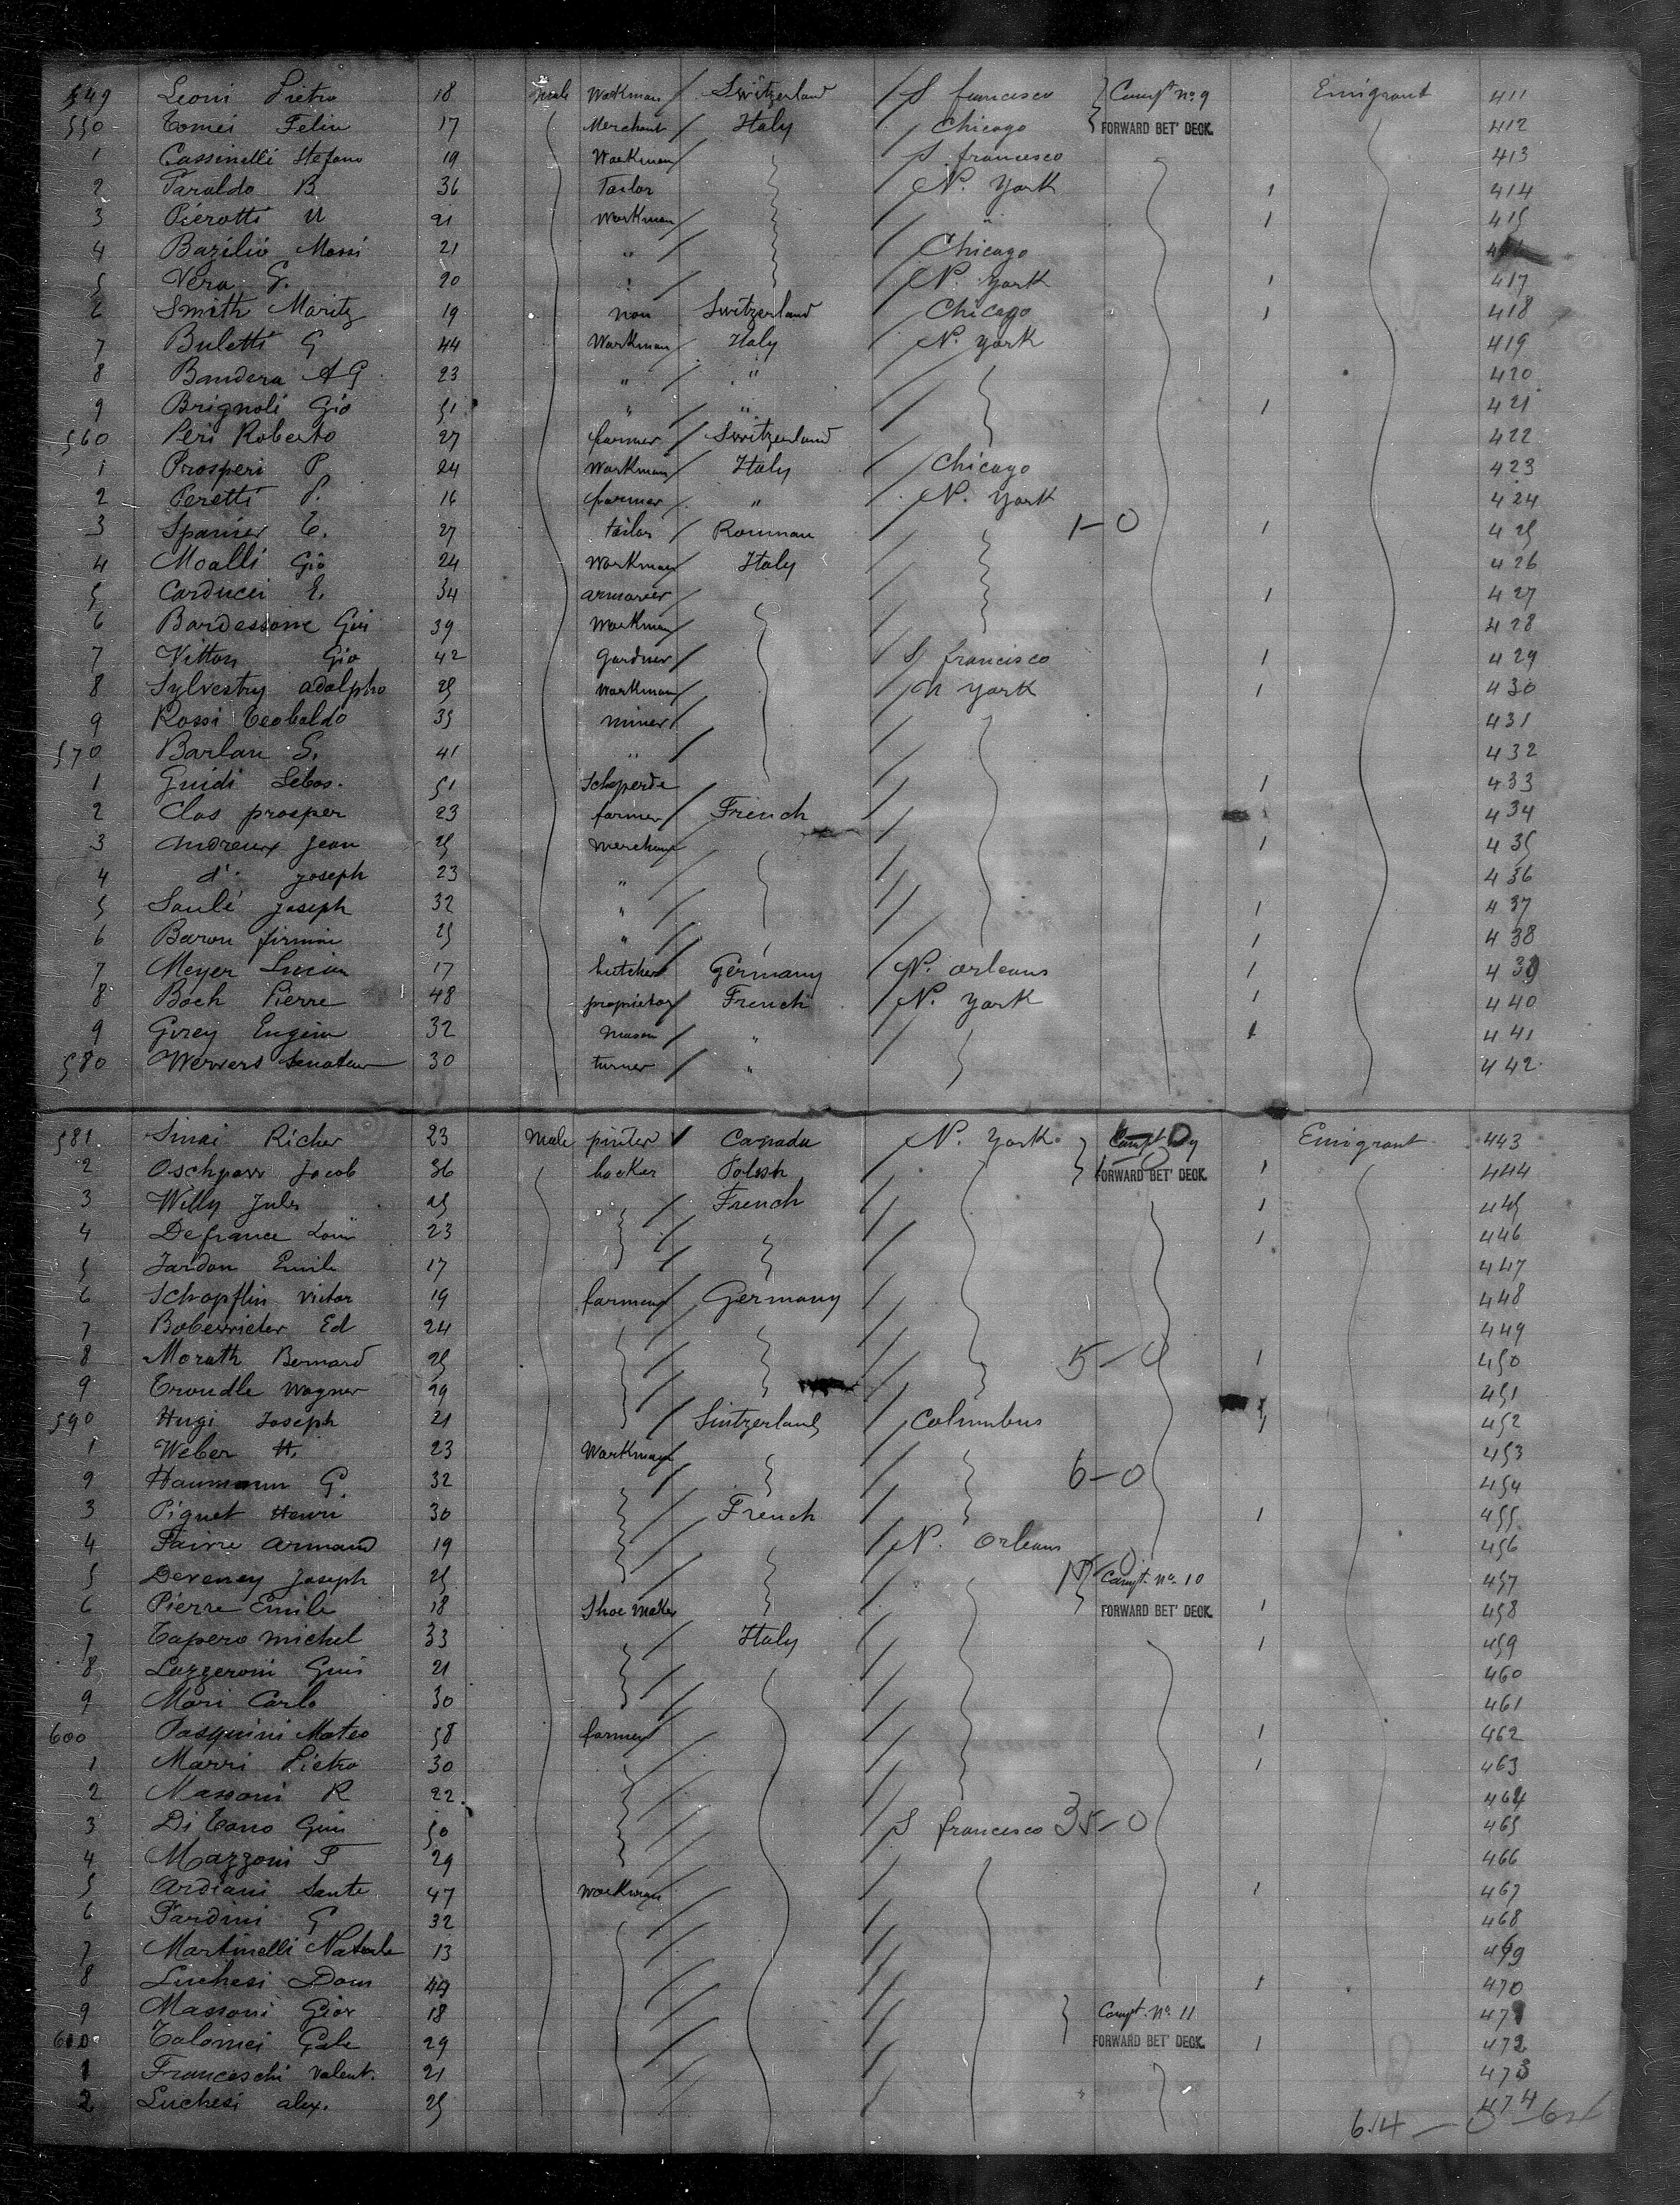 549 Leoni Pietro 18 Male Workman Switzerland S francisco Compt no. 9 Emigrant 411
550 Tomei Felin 17 Merchant Italy Chicago FORWARD BET' DECK. 412
1 Cassinelli Stefano 19 Workman S. francisco 413
2 Taraldo B 36 Tailor N. York 1 414
3 Pierotti U 21 Workman " 1 415
4 Bazilio Massi 21 " Chicago
5 Vera G. 20 " N. York 1 417
6 Smith Moritz 19 non Switzerland Chicago 1 418
7 Buletti G 44 Workman Italy N. York 419
8 Bandera A G 23 " " 420
9 Brignoli Gio 51 " " 1 421
560 Peri Roberto 27 farmer Switzerland 422
1 Prosperi P. 24 Workman Italy Chicago 423
2 Peretti P. 16 farmer " N. York 424
3 Spanier E. 27 tailor Rouman 1-0 1 425
4 Moalli Gio 24 Workman Italy 426
5 Carducci E. 34 armorier 1 427
6 Bardessone Giu 39 Workman 428
7 Vitton Gio 42 Gardner S francisco 1 429
8 Sylvestry adolpho 25 Workman N York 1 430
9 Rossi Teobaldo 35 miner 431
570 Barlan S. 41 " 432
1 Guidi Sebas. 51 Scheperde 1 433
2 Clos prosper 23 farmer French 434
3 Andreux Jean 25 Merchant 1 435
4 do Joseph 23 " 436
5 Saulé Joseph 32 " 1 437
6 Baron firmin 25 " 1 438
7 Meyer Lucien 17 butcher Germany N. orleans 1 439
8 Boch Pierre 48 proprietor French N. York 1 440
9 Girey Eugein 32 Mason " 1 441
580 Wervers Senateur 30 turner " 442
581 Sinai Richer 23 Male pinter Canada N. York Compt 9 Emigrant 443
2 Oschparr Jacob 36 hocker Polish FORWARD BET' DECK. 1 444
3 Willy Jules 25 French 1 445
4 Defrance Louis 23 1 446
5 Jardon Emile 17 447
6 Schopflin Victor 19 farmer Germany 448
7 Boberrieter Ed 24 449
8 Morath Bernard 25 5-0 1 450
9 Trondle Wagner 29 451
590 Hugi Joseph 21 Sintzerland Columbus 1 452
1 Weber H. 23 Workman 453
2 Haumann G. 32 6-0 454
3 Piquet Henri 30 French 1 455
4 Faivre Armand 19 N. Orleans 456
5 Deveney Joseph 25 Compt. no. 10 457
6 Pierre Emile 18 Shoe Maker FORWARD BET' DECK. 1 458
7 Tapero Michel 33 Italy 1 459
8 Lazzeroni Gius 21 460
9 Mari Carlo 30 461
600 Pasquini Mateo 58 farmer 1 462
1 Marri Pietro 30 1 463
2 Massoni R 22 464
3 Di Tano Gius 50 S francisco 35-0 465
4 Mazzoni F 29 466
5 Ardiani Sante 47 Workman 1 467
6 Pardini G 32 468
7 Martinelli Natale 13 469
8 Luchesi Dom 44 1 470
9 Massoni Gior 18 Compt. no. 11 471
600 Tolomei Gale 29 FORWARD BET' DECK. 1 472
1 Franceschi Valent. 21 473
2 Luchesi alex. 25 474
614 - 0